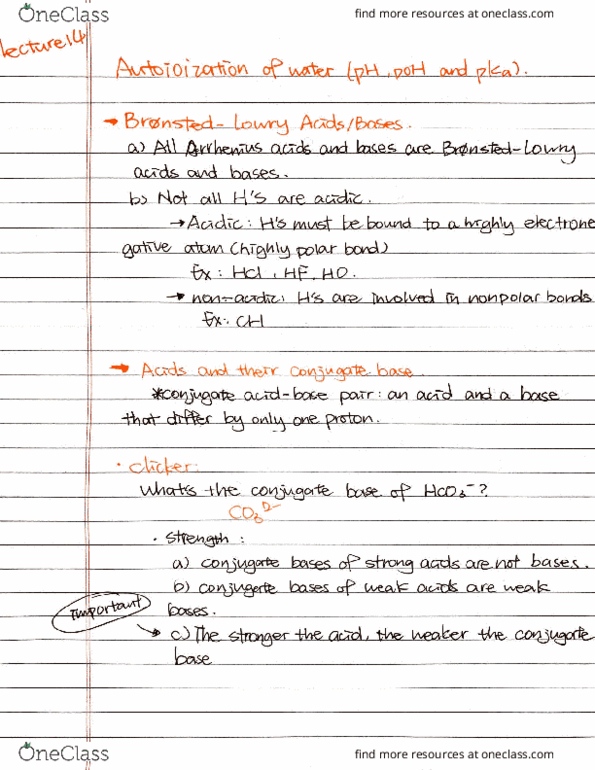 OneClass
find more resources at oneclass.com
lecture14
Autoioization of water (pH, pOH and pKa).
→ Brønsted-Lowry Acids/Bases.
a) All Arrhenius acids and bases are Brønsted-Lowry
acids and bases.
b) Not all H's are acidic.
→ Acidic: H's must be bound to a highly electrone
gative atom (highly polar bond)
Ex: HCl, HF, HO.
→ non-acidic: H's are involved in nonpolar bonds
Ex: CH
→ Acids and their conjugate base.
*conjugate acid-base pair: an acid and a base
that differ by only one proton.
· clicker:
What's the conjugate base of HCO3⁻?
CO3²⁻
· strength:
a) conjugate bases of strong acids are not bases.
b) conjugate bases of weak acids are weak
bases.
Important
→ c) The stronger the acid, the weaker the conjugate
base
OneClass
find more resources at oneclass.com